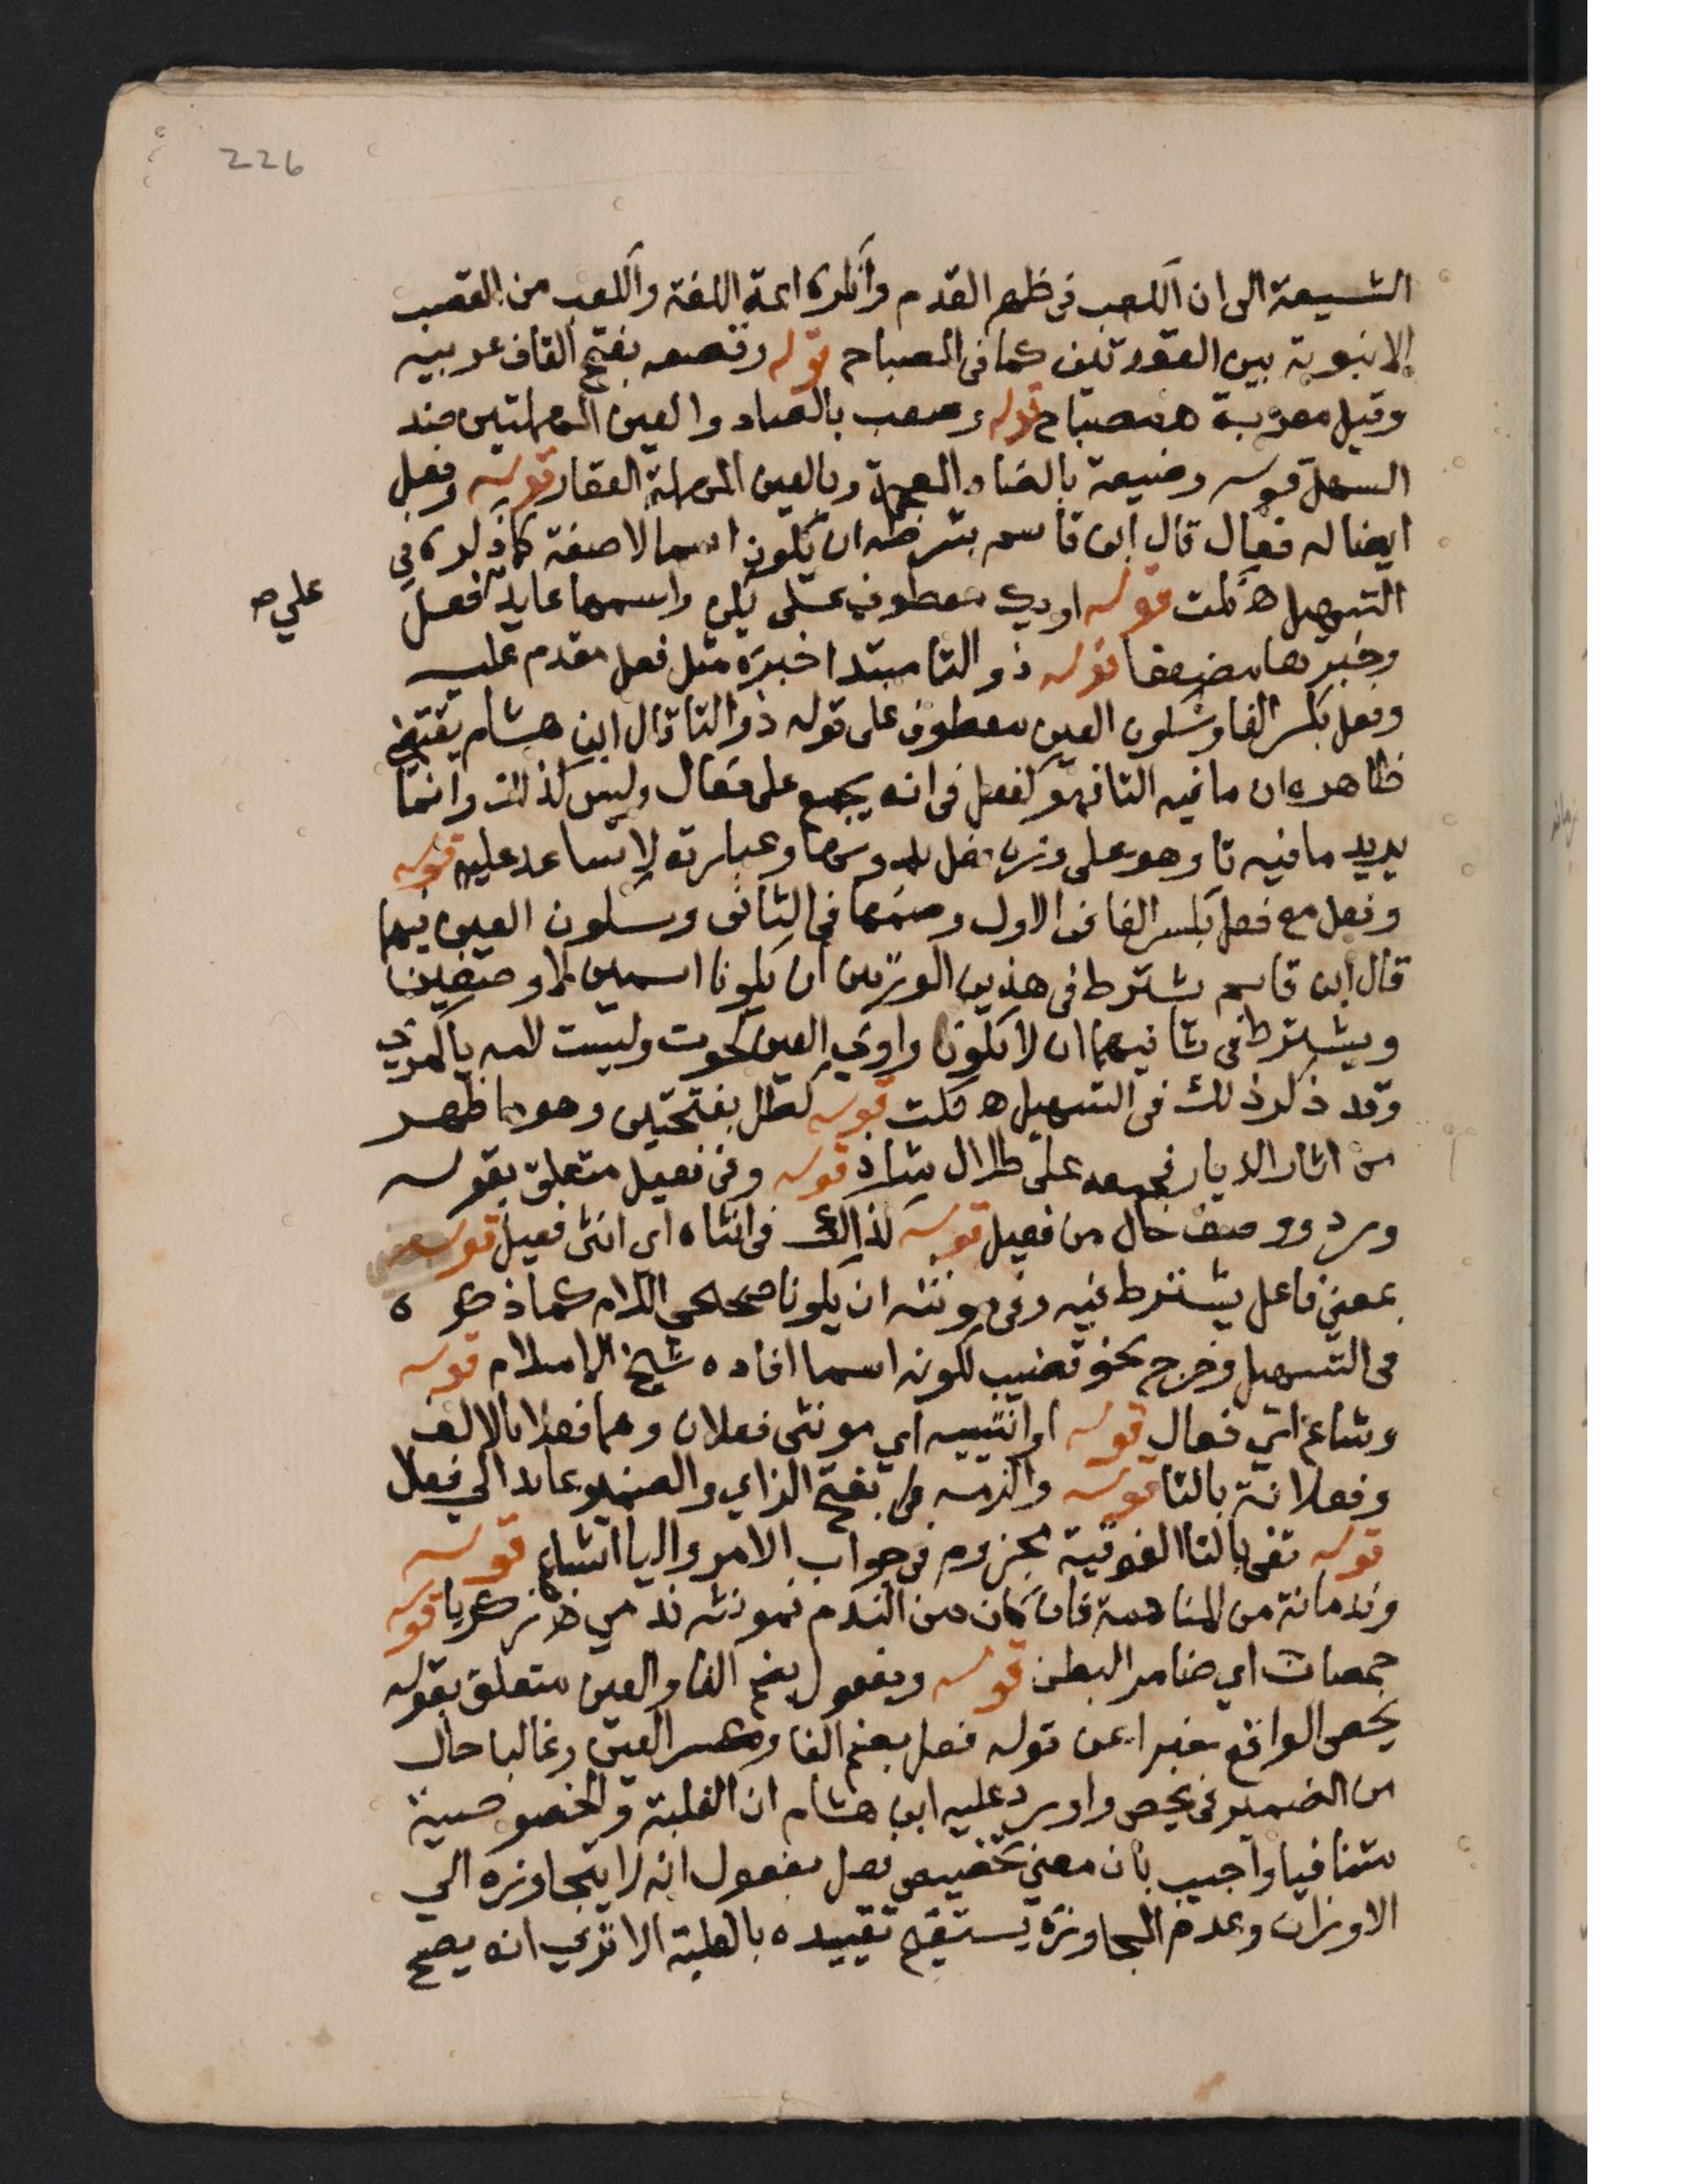 226
الشيعة الى ان الكعب فى ظهر القدم وانكره ايمة اللغة والكعب من القصب
الانبوبة بين العقدتين كما فى المصباح قوله وقصعه بفتح القاف عربيه
وقيل معربة ه مصباح قوله وصعب بالصاد والعين المهملتين ضد
السهل قوله وضيعة بالضاد المعجمة وبالعين المهملة العقار قوله وفعل
ايضا له فعال قال ابن قاسم بشرطه ان يكون اسما لاصفة كما ذكره في
التسهيل ه قلت قوله اويك معطوف على يكن واسمها عايد فعل
على ص
وخبرها مضعفا قوله ذو التا مبتدا خبره مثل فعل مقدم عليه
وفعل بكسر الفا وسكون العين معطوف على قوله ذو التا قال ابن هشام يقتضي
ظاهره ان ما فيه التا فهو كفعل فى انه يجمع على فعال وليس كذلك وانما
يريد ما فيه تا وهو على وزن فعل بدونها وعبارته لا تساعد عليه قوله
وفعل مع فعل بكسر الفا فى الاول وضمها فى الثانى وسكون العين فيهما
قال ابن قاسم يشترط فى هذين الوزنين ان يكونا اسمين لا وصفين
ويشترط فى ثانيهما ان لا يكون واوي العين كحوت وليست لامه يا كمدي
وقد ذكر ذلك فى التسهيل ه قلت قوله كطلل بفتحتين وهو ما ظهر
من اثار الديار فجمعه على طلال شاذ قوله وفى فعيل متعلق بقوله
ورد ووصف حال من فعيل قوله كذاك فى انثاه اي انثى فعيل قوله
بمعنى فاعل يشترط فيه وفى مونثه ان يكونا صحيحي اللام كما ذكره
فى التسهيل وخرج نحو قضيب لكونه اسما افاده شيخ الاسلام قوله
وشاع اي فعال قوله او انثييه اي مونثى فعلان وهما فعلا بالالف
وفعلانة بالتا قوله والزمه بفتح الزاي والضمير عايد الي فعلا
قوله تفى بالتا الفوقية مجزوم فى جواب الامر واليا اشباع قوله
وندمانة من المنادمة فان كان من الندم فمونثه ندمي ه زكريا قوله
خمصان اي ضامر البطن قوله وبفعول بضم الفا والعين متعلق بقوله
يخص الواقع خبرا عن قوله فعل بفتح الفا وكسر العين وغالبا حال
من الضمير فى يخص واورد عليه ابن هشام ان الغلبة والخصوصية
متنافيا واجيب بان معنى تخصيص فعل بفعول انه لا يتجاوزه الي
الاوزان وعدم المجاوزة يستقيم تقييده بالغلبة الا تري انه يصح